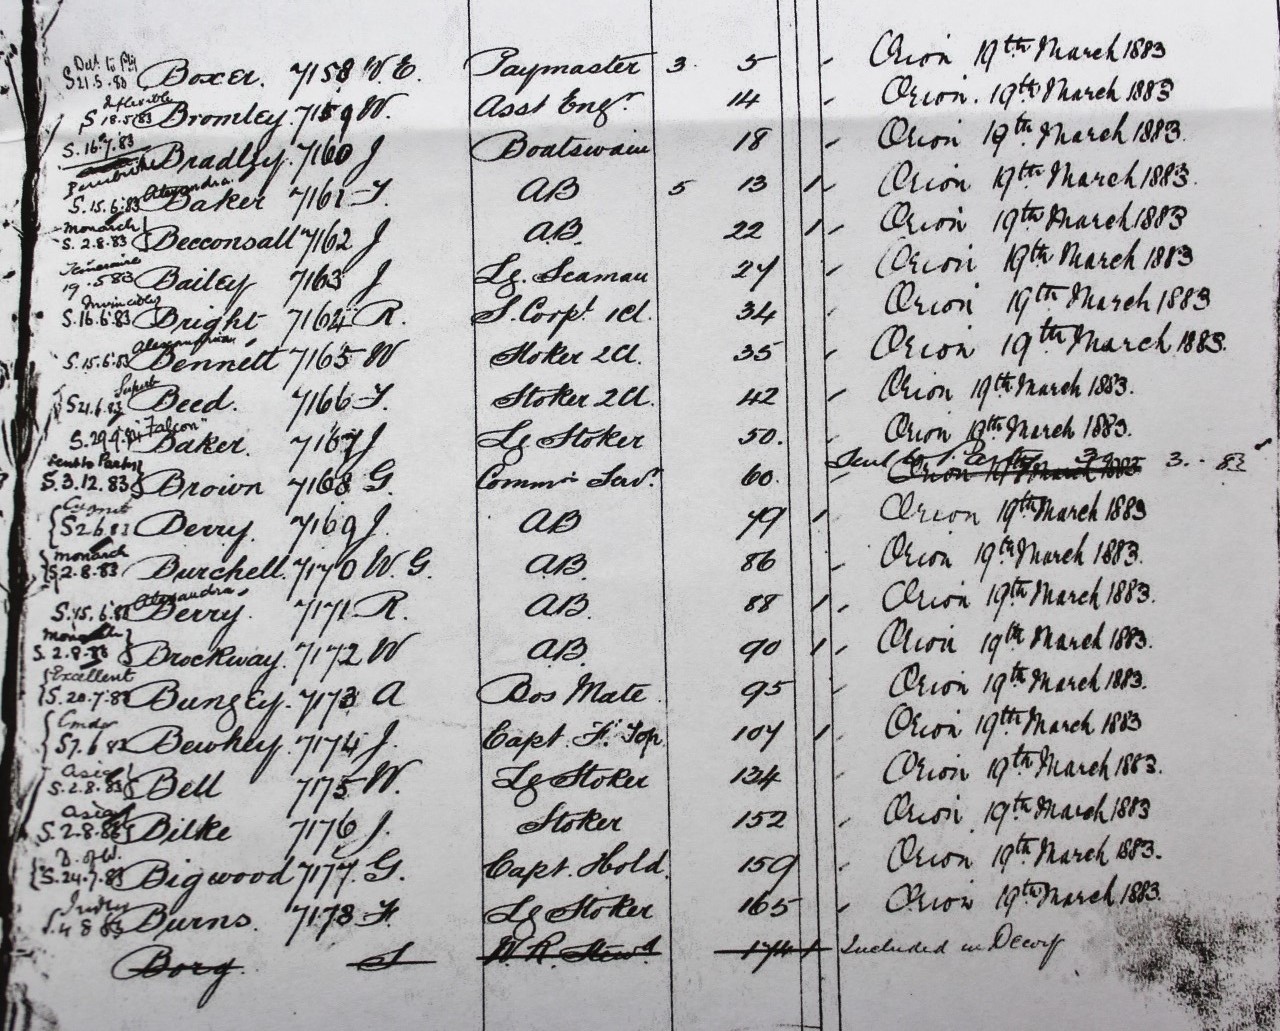 S 21.5.83 Boxer. 7158 W. E. Paymaster 3. 5 Orion 19th March 1883
Inflexible
S 18.5.83 Bromley. 7159 W. Asst Engr. 14 Orion. 19th March 1883
S. 16.7.83 Bradley. 7160 J Boatswain 18 Orion 19th March 1883.
Alexandra
S. 15.6.83 Baker 7161 T. AB 5 13 1 Orion 19th March 1883.
Monarch
S. 2.8.83 Becconsall 7162 J AB. 22 1 Orion 19th March 1883
Temeraire
19.5.83 Bailey 7163 J Lg. Seaman 27 Orion 19th March 1883
Invincible
S. 16.6.83 Bright 7164 R. S. Coopr. 1Cl. 34 Orion 19th March 1883
S. 15.6.83 Bennett 7165 W Stoker 2Cl. 35 Orion 19th March 1883.
Superb
S 21.6.83 Beed. 7166 T. Stoker 2Cl. 42 Orion 19th March 1883.
"Falcon"
S. 29.9.84 Baker. 7167 J Lg Stoker 50. Orion 19th March 1883.
Sent to 3. .. 83
S. 3.12.83 Brown 7168 G. Commn Serv. 60. Orion 19th March 1883
Cygnet
S 2.6.83 Berry. 7169 J. AB 79 1 Orion 19th March 1883
Monarch
S. 2.8.83 Burchell. 7170 W. G. AB. 86 Orion 19th March 1883.
Alexandra
S. 15.6.83 Berry. 7171 R. AB. 88 1 Orion 19th March 1883.
Monarch
S. 2.8.83 Brockway. 7172 W AB. 90 1 Orion 19th March 1883.
Excellent
S. 20.7.83 Bungey. 7173 A Bos Mate 95 Orion 19th March 1883.
S 7.6.83 Bewhey. 7174 J. Capt. F. Top. 107 1 Orion 19th March 1883
Asia
S. 2.8.83 Bell 7175 W. Lg Stoker 134 Orion 19th March 1883.
Asia
S. 2.8.83 Bilke 7176 J. Stoker 152 Orion 19th March 1883
D. of W.
S. 24.7.83 Bigwood 7177. G. Capt. Hold. 159 Orion 19th March 1883.
S. 4 8 83 Burns. 7178 F. Lg Stoker 165 Orion 19th March 1883.
Borg. S W. R. Stewd 174 1 Included in